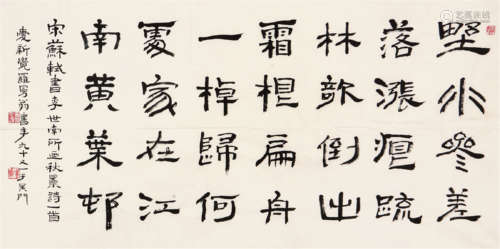 野水參差
落漲痕疏
林欹倒出
霜根扁舟
一棹歸何
處家在江
南黃葉邨
宋蘇軾書李世南所畫秋景詩一首
愛新覺羅 翁書年九十又一于吳門